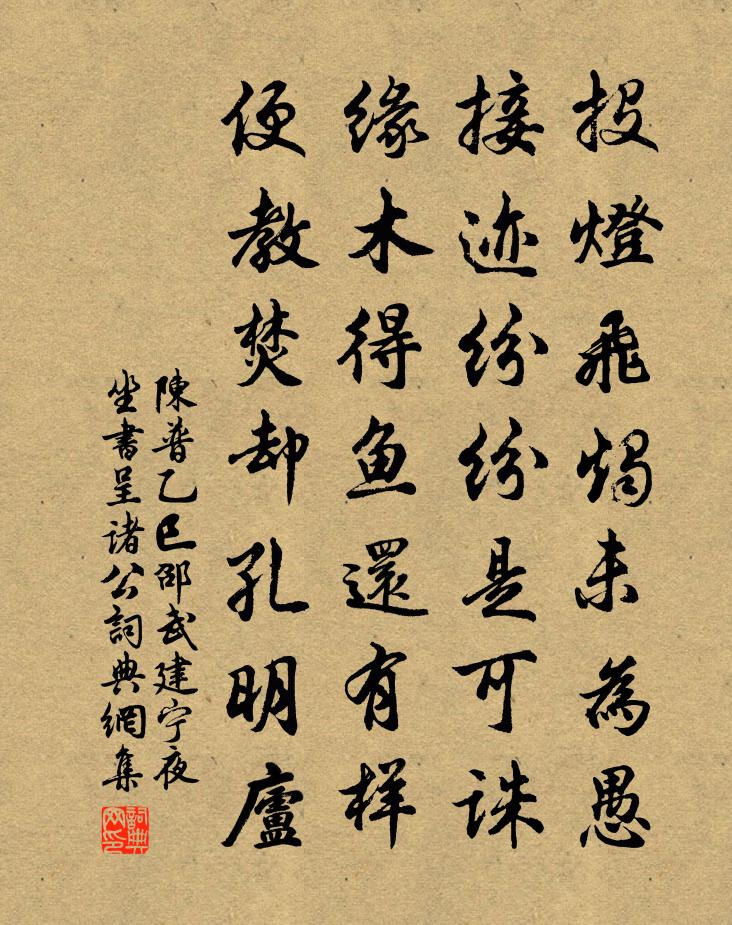 投燈飛燭未為愚
接迹纷纷是可誅
緣木得鱼還有样
便教焚却孔明廬
陳普乙巳邵武建宁夜
坐書呈诸公詞典網集
詞典网印